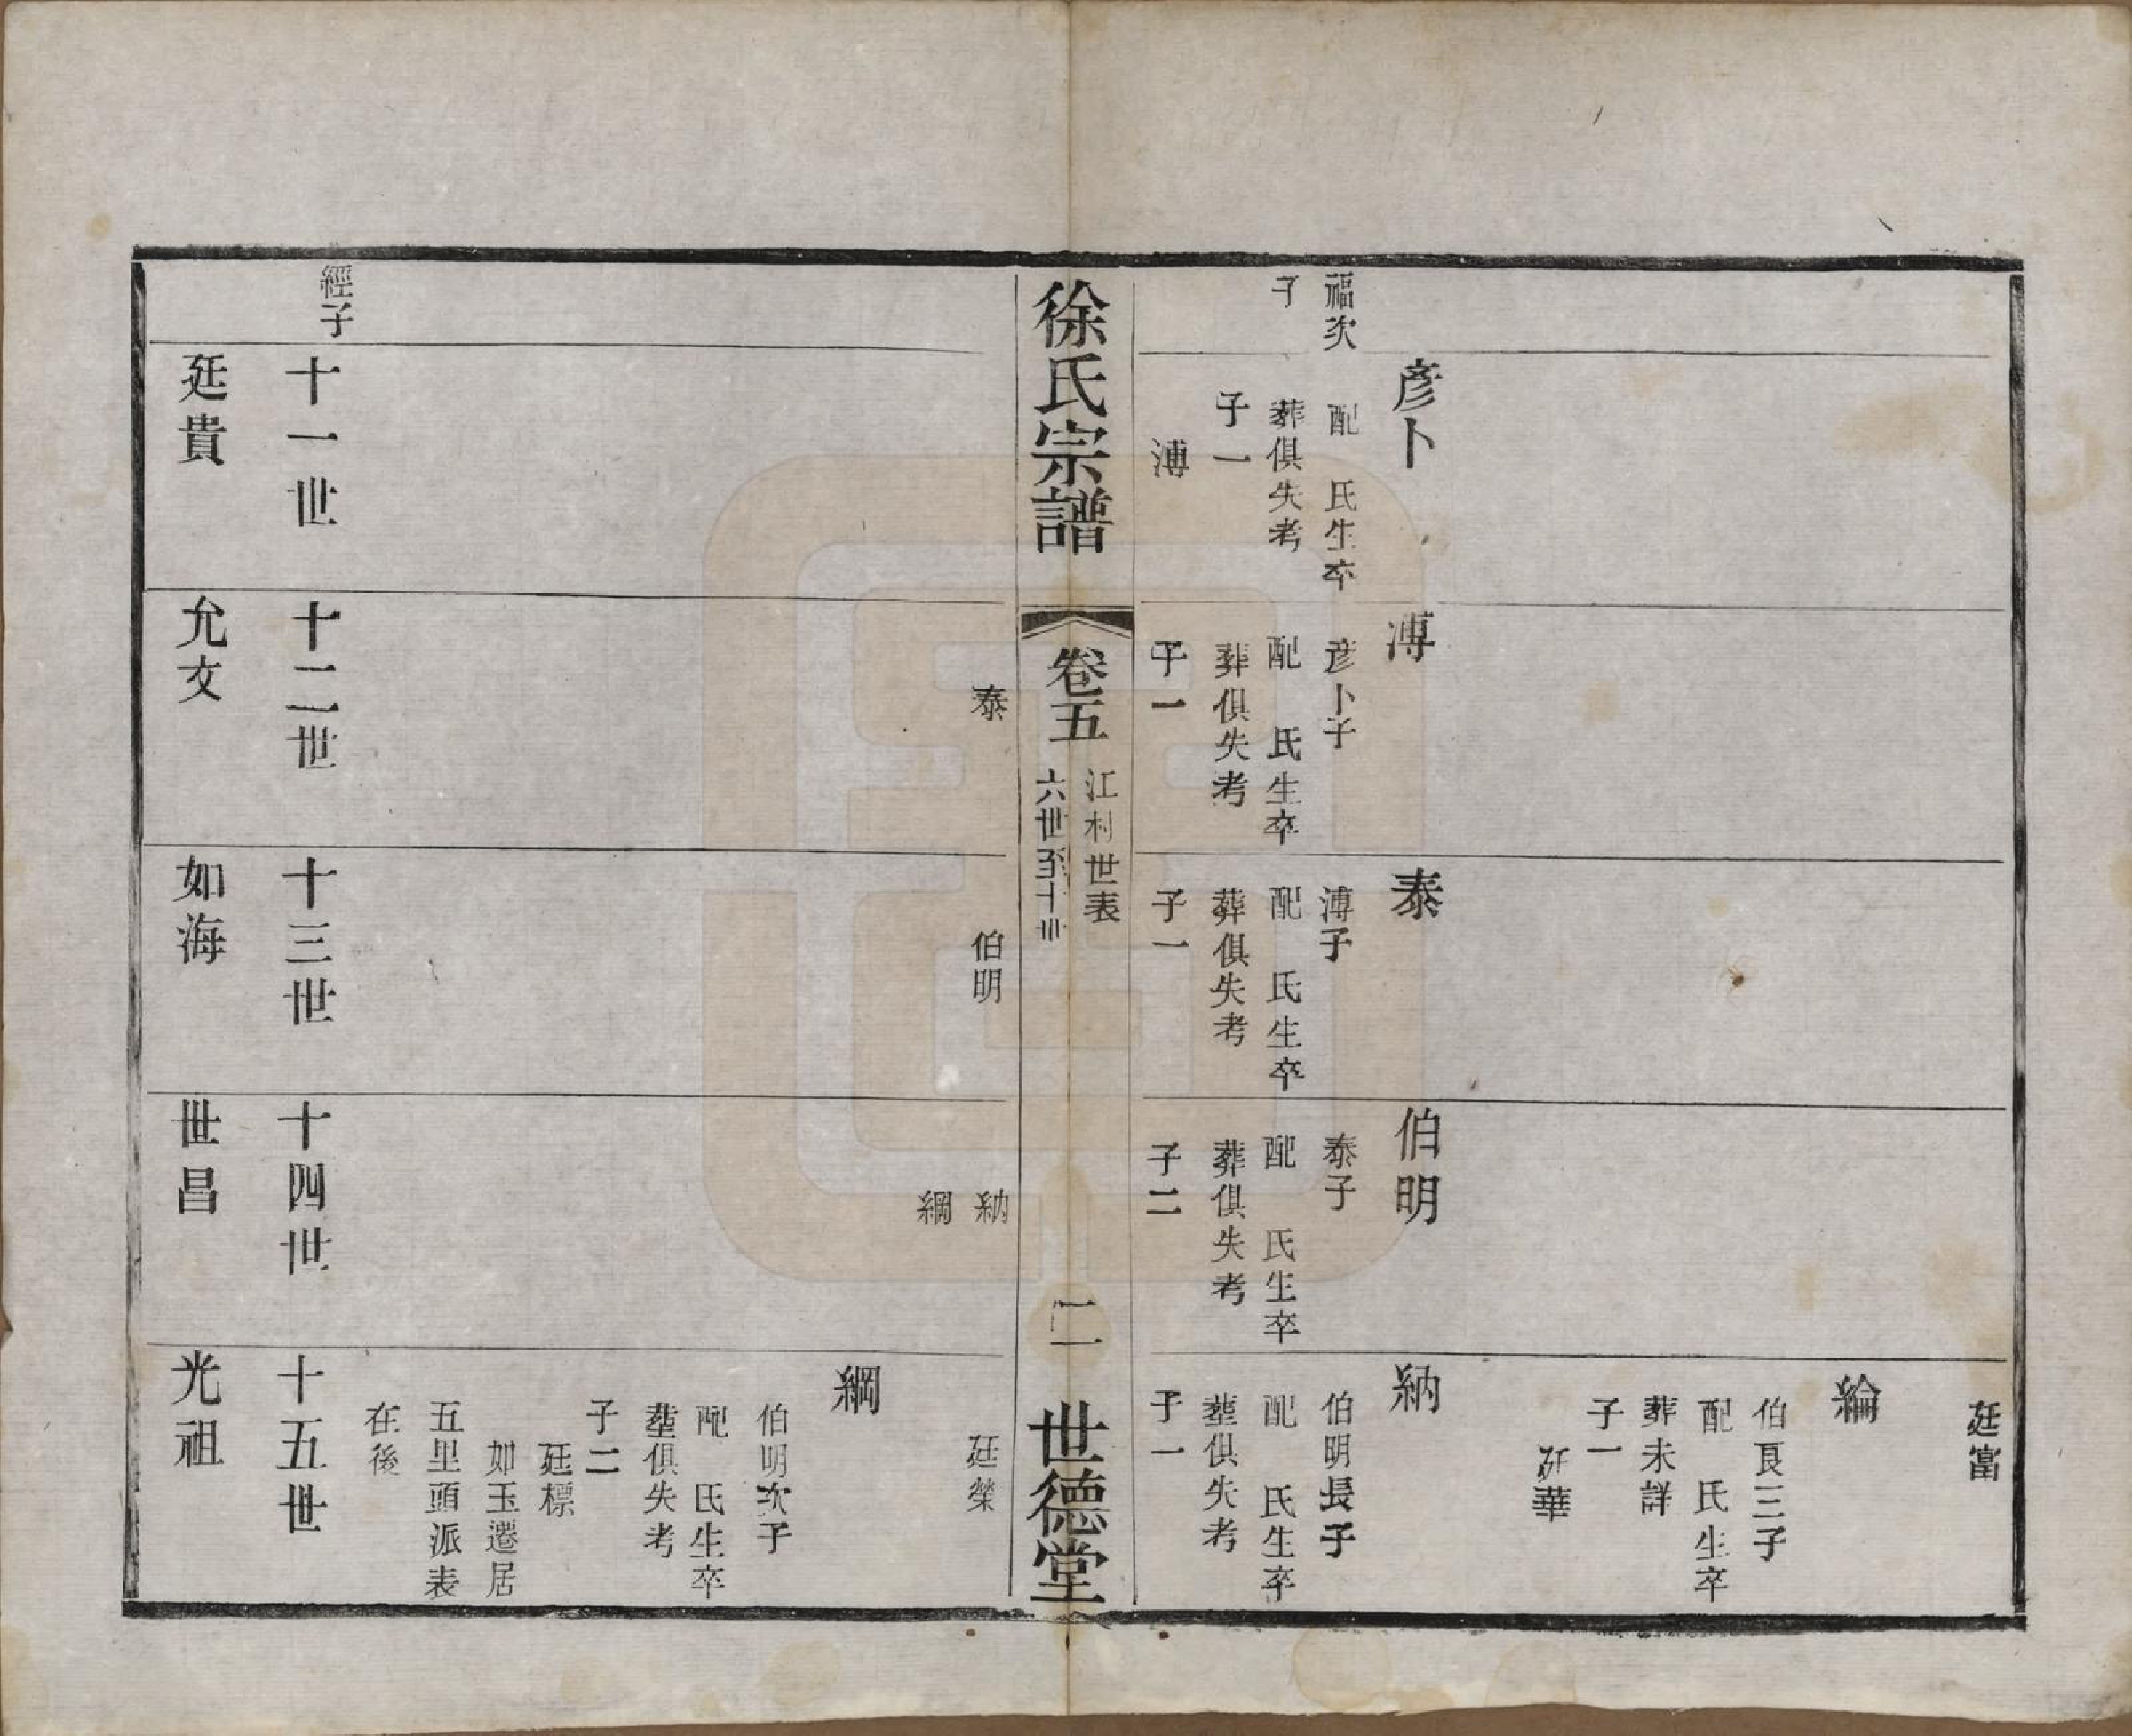 福次
子
彦卜
配　氏生卒
葬俱失考
子一
溥
溥
彦卜子
配　氏生卒
葬俱失考
子一
泰
溥子
配　氏生卒
葬俱失考
子一
伯明
泰子
配　氏生卒
葬俱失考
子二
廷富
綸
伯良三子
配　氏生卒
葬未詳
子一
廷華
納
伯明長子
配　氏生卒
塟俱失考
子一
徐氏宗譜
卷五
江村世表
六世至十世
二
世德堂
泰
伯明
納
綱
廷榮
綱
伯明次子
配　氏生卒
塟俱失考
子二
廷標
如玉遷居
五里頭派表
在後
經子
十一世
廷貴
十二世
允文
十三世
如海
十四世
世昌
十五世
光祖